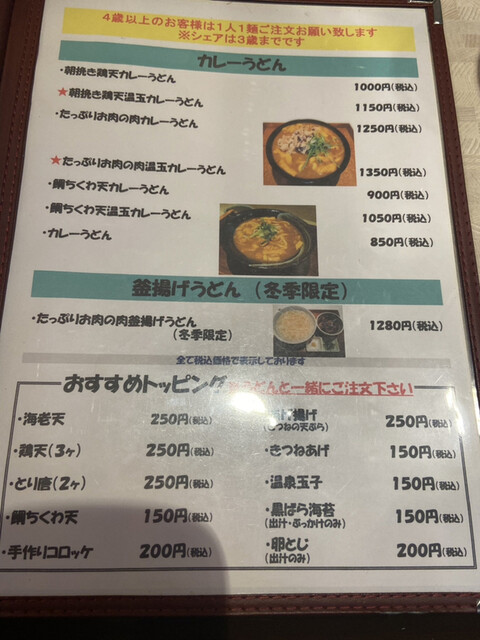 4歳以上のお客様は1人1麺ご注文お願い致します
※シェアは3歳までです
カレーうどん
・朝挽き鶏天カレーうどん 1000円(税込)
★朝挽き鶏天温玉カレーうどん 1150円(税込)
・たっぷりお肉の肉カレーうどん 1250円(税込)
★たっぷりお肉の肉温玉カレーうどん 1350円(税込)
・鯛ちくわ天カレーうどん 900円(税込)
・鯛ちくわ天温玉カレーうどん 1050円(税込)
・カレーうどん 850円(税込)
釜揚げうどん（冬季限定）
・たっぷりお肉の肉釜揚げうどん 1280円(税込)
(冬季限定)
全て税込価格で表示しております
おすすめトッピング ※うどんと一緒にご注文下さい
・海老天 250円(税込)
・鶏天(3ヶ) 250円(税込)
・とり唐(2ヶ) 250円(税込)
・鯛ちくわ天 150円(税込)
・手作りコロッケ 200円(税込)
揚げ 250円(税込)
(きつねの天ぷら)
・きつねあげ 150円(税込)
・温泉玉子 150円(税込)
・黒ばら海苔 150円(税込)
(出汁・ぶっかけのみ)
・卵とじ 200円(税込)
(出汁のみ)